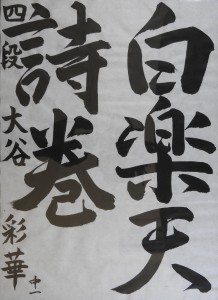 白楽天
詩巻
四段 大谷 彩華
中一